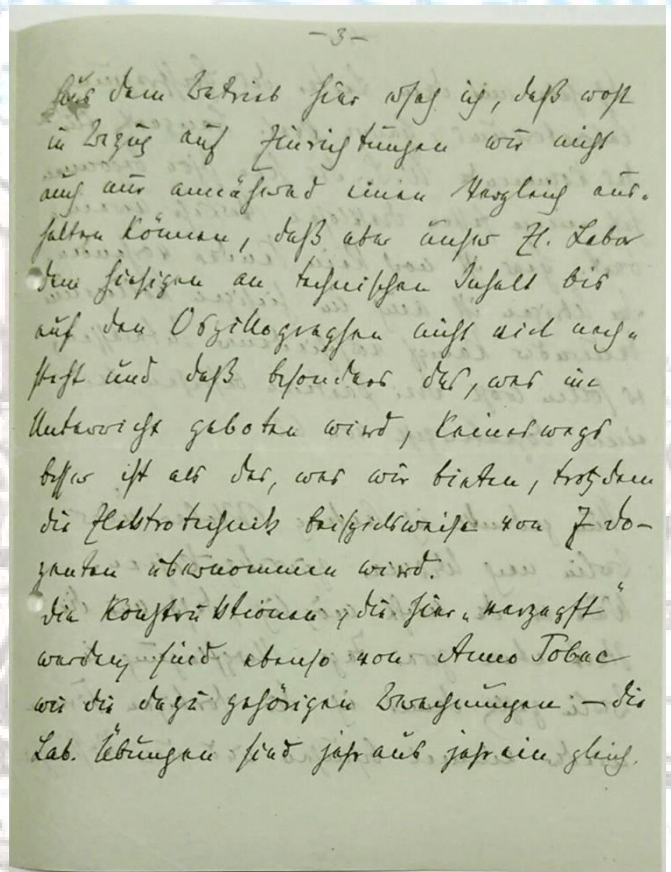 – 3 –
Aus dem Betrieb hier ersah ich, daß wohl
in Bezug auf Einrichtungen wir nicht
auch nur annähernd einen Vergleich aus-
halten können, daß aber unser El. Labor
dem hiesigen an technischen Inhalt bis
auf den Oszillographen nicht viel nach-
steht und daß besonders das, was im
Unterricht geboten wird, keineswegs
besser ist als das, was wir bieten, trotzdem
die Elektrotechnik beispielsweise von 7 Do-
zenten übernommen wird.
Die Konstruktionen, die hier „verzapft“
werden, sind ebenso von Anno Tobac
wie die dazu gehörigen Berechnungen – die
Lab. Übungen sind jahraus jahrein gleich.